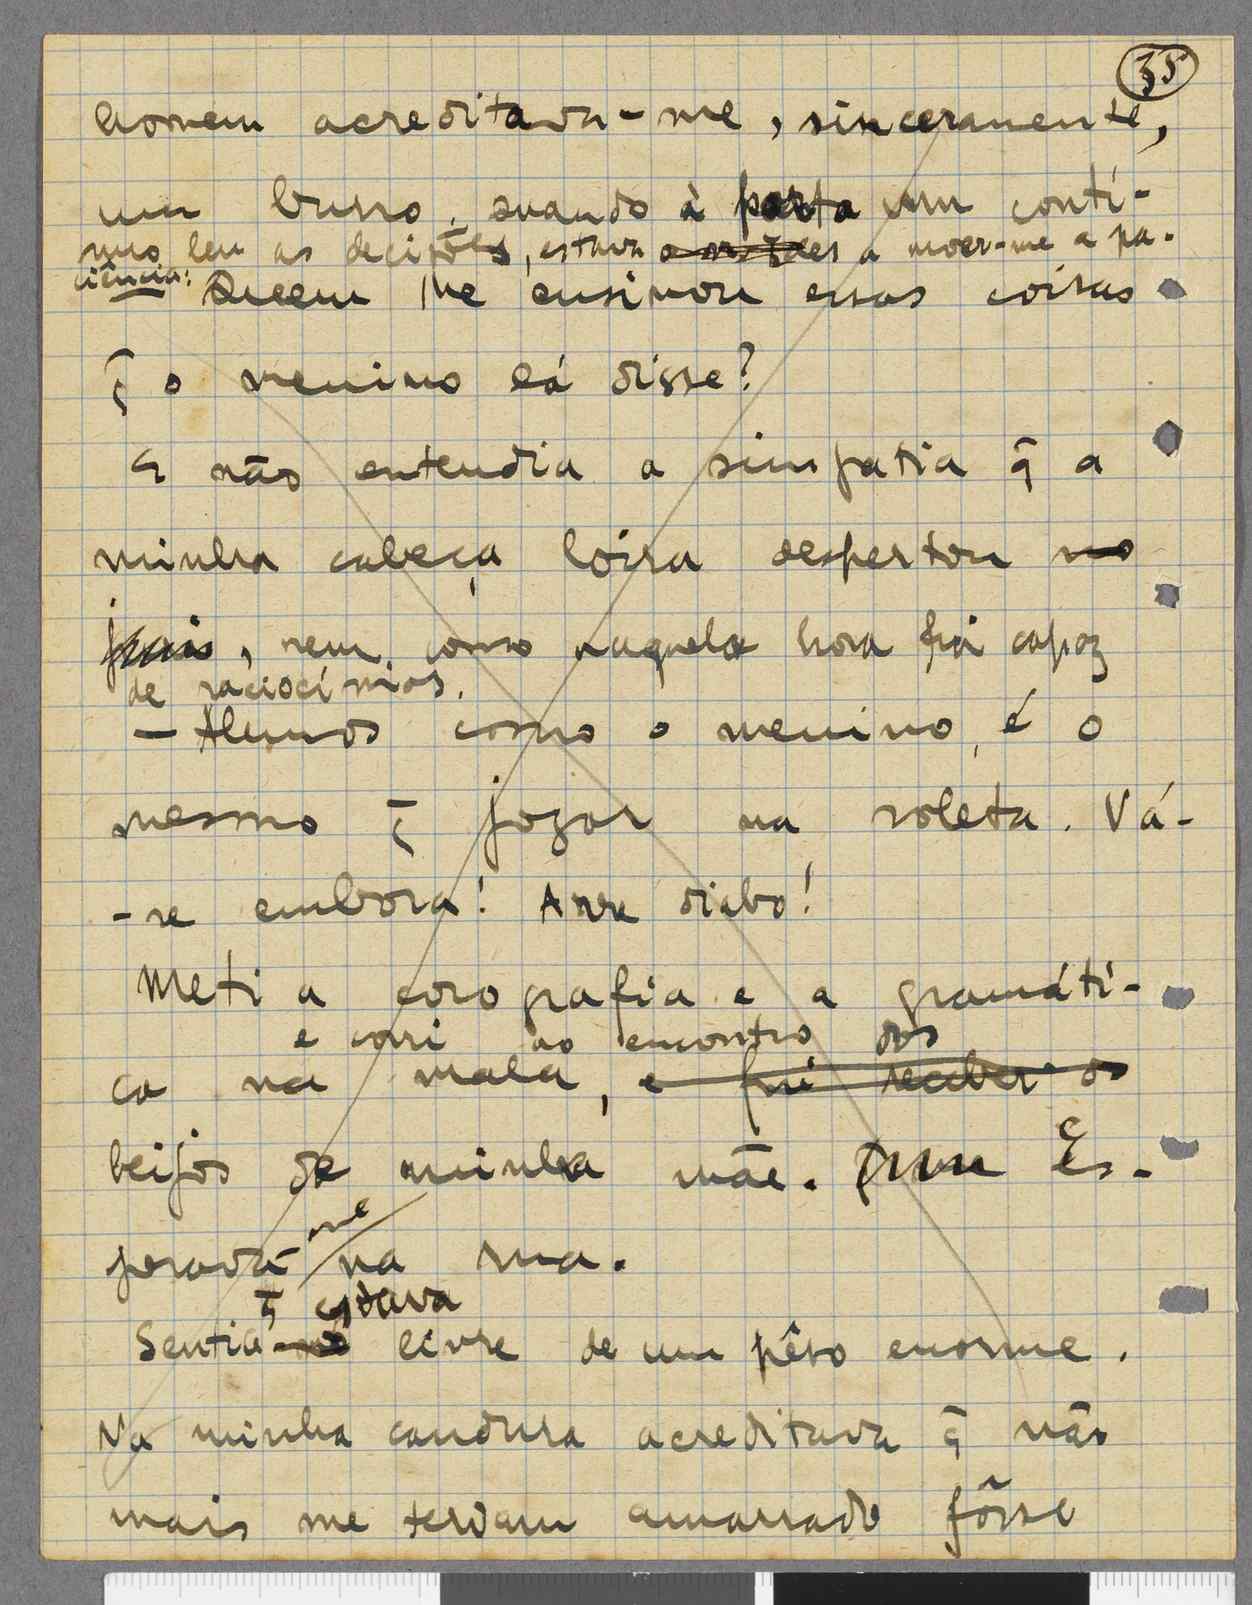 35
homem acreditava-me, sinceramente,
um burro. Quando à porta um contí-
nuo leu as decisões, estava a moer-me a pa-
ciência:
Quem lhe ensinou essas coisas
q̃ o menino lá disse?
E não entendia a simpatia q̃ a
minha cabeça loira despertou no
juís, nem como naquela hora fui capaz
de raciocínios.
— Alunos como o menino, é o
mesmo q̃ jogar na roleta. Vá-
-se embora! Arre diabo!
Meti a corografia e a gramáti-
e corri ao encontro dos
ca na mala, e fui receber os
beijos de minha mãe. Es-
me
perava na rua.
q̃ estava
Sentia-me livre de um pêso enorme.
Na minha candura acreditava q̃ não
mais me teriam amarrado fôsse